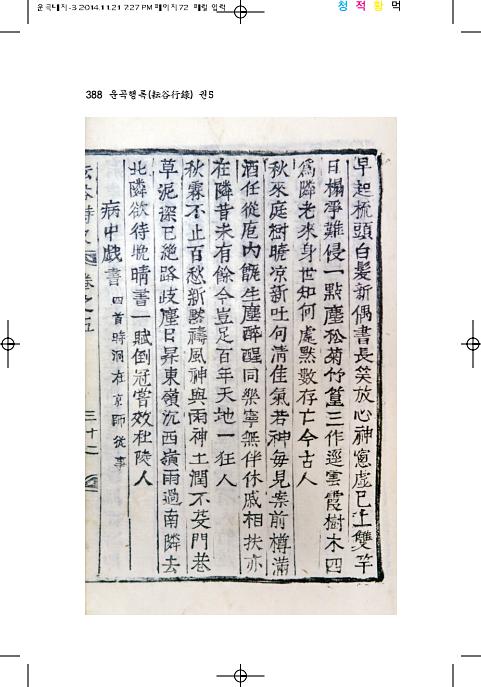 운곡내지-3 2014.11.21 7:27 PM 페이지72 매킬 입력
청 적 황 먹
388 운곡행록(耘谷行錄) 권5
早起梳頭白髮新偶書長笑放心神窓虛已上雙竿
日榻淨難侵一點塵松菊竹篁三作逕雲霞樹木四
爲隣老來身世知何處默數存亡今古人
秋來庭樹晩凉新吐句淸佳氣若神每見案前樽滿
酒任從庖內甑生塵醉醒同樂寧無伴休戚相扶亦
在隣昔未有餘今豈足百年天地一狂人
秋霖不止百愁新默禱風神與雨神土潤不芟門巷
草泥深已絶路歧塵日昇東嶺沉西嶺雨過南隣去
北隣欲待晩晴書一賦倒冠嘗效杜陵人
病中戱書 四首時泂在京師從事
卷之五 三十二